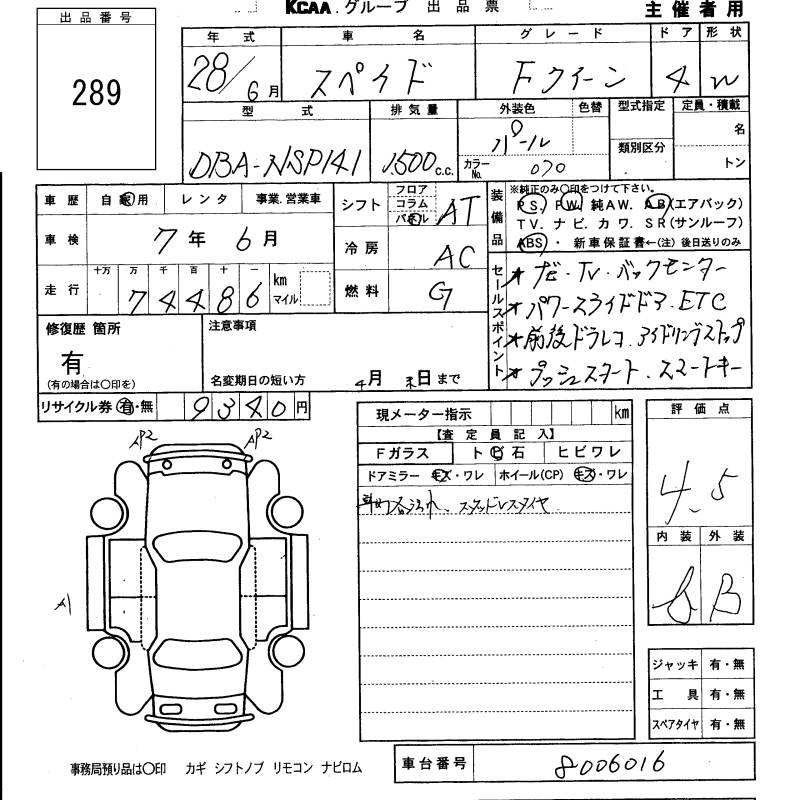 出品番号
289
KCAA.グループ 出品票
主催者用
年式 車名 グレード ドア 形状
28/6月 スペイド Fクイーン 4 W
型式 排気量 外装色 色替 型式指定 定員・積載
DBA-NSP141 1500c.c. パール 類別区分 名
カラーNo. 070 トン
車歴 自家用 レンタ 事業.営業車
シフト フロア コラム パネル AT
車検 7年 6月
冷房 AC
走行 十万 万 千 百 十 一 km マイル
74486
燃料 G
装備品 ※純正のみ〇印をつけて下さい。
PS. PW. 純AW. AB(エアバック)
TV. ナビ. カワ. SR(サンルーフ)
ABS ・ 新車保証書←(注)後日送りのみ
セールスポイント
・TV・バックモニター
パワースライドドア. ETC
前後ドラレコ. アイドリングストップ
プッシュスタート. スマートキー
修復歴 箇所
有
(有の場合は〇印を)
注意事項
名変期日の短い方 4月 末日まで
リサイクル券 有・無 9340円
現メーター指示 km
【査定員記入】
Fガラス ト ビ 石 ヒビワレ
ドアミラー キズ・ワレ ホイール(CP) キズ・ワレ
スタッドレスタイヤ
評価点
4.5
内装 外装
B
AP2 AP2
A1
ジャッキ 有・無
工具 有・無
スペアタイヤ 有・無
事務局預り品は〇印 カギ シフトノブ リモコン ナビロム
車台番号 8006016